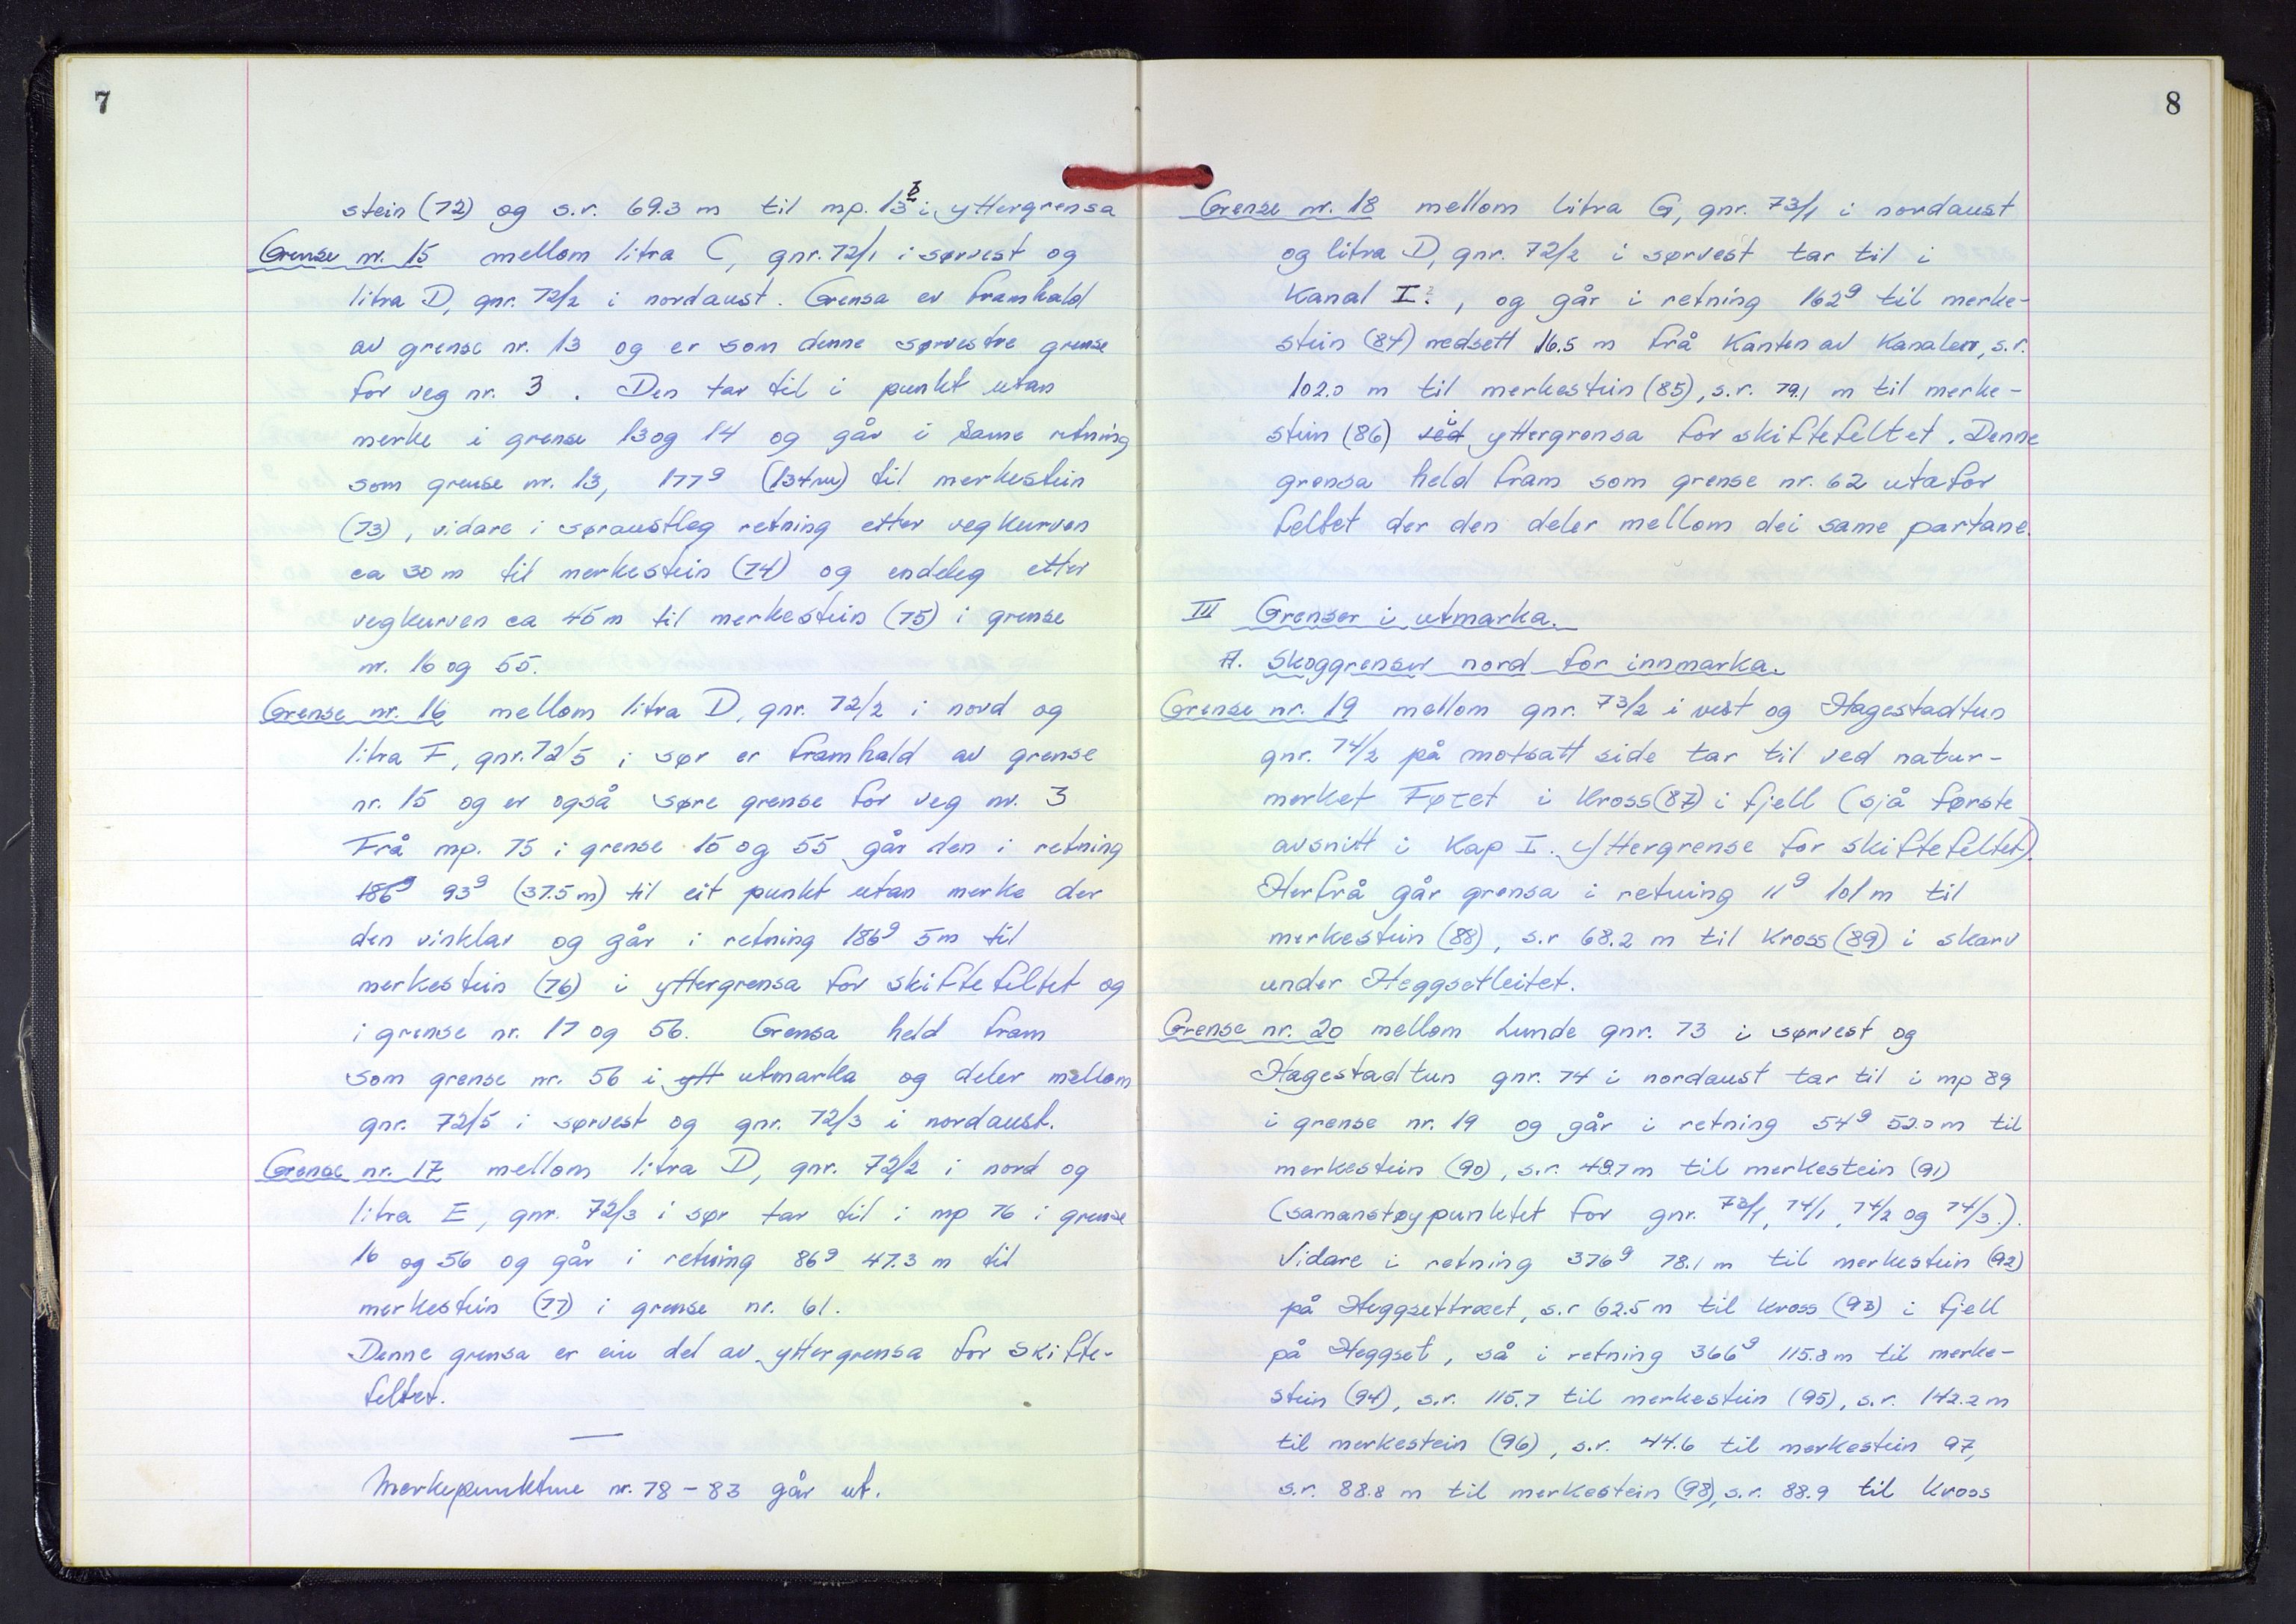 7
stein (72) og s.r. 69.3 m til mp. 13b i yttergrensa
Grense nr. 15 mellom litra C, gnr. 72/1 i sørvest og
litra D, gnr. 72/2 i nordaust. Grensa er framhald
av grense nr. 13 og er som denne sørvestre grense
for veg nr. 3. Den tar til i punkt utan
merke i grense 13 og 14 og går i same retning
som grense nr. 13, 177g (134m) til merkestein
(73), vidare i søraustleg retning etter vegkurven
ca 30 m til merkestein (74) og endeleg etter
vegkurven ca 45 m til merkestein (75) i grense
nr. 16 og 55.
Grense nr. 16 mellom litra D, gnr. 72/2 i nord og
litra F, gnr. 72/5 i sør er framhald av grense
nr. 15 og er også søre grense for veg nr. 3
Frå mp. 75 i grense 15 og 55 går den i retning
186g 93g (37.5 m) til eit punkt utan merke der
den vinklar og går i retning 186g 5 m til
merkestein (76) i yttergrensa for skiftefeltet og
i grense nr. 17 og 56. Grensa held fram
som grense nr. 56 i ytt utmarka og deler mellom
gnr. 72/5 i sørvest og gnr. 72/3 i nordaust.
Grense nr. 17 mellom litra D, gnr. 72/2 i nord og
litra E, gnr. 72/3 i sør tar til i mp 76 i grense
16 og 56 og går i retning 86g 47.3 m til
merkestein (77) i grense nr. 61.
Denne grensa er ein del av yttergrensa for skifte-
feltet.
Merkepunktene nr. 78 - 83 går ut.
8
Grense nr. 18 mellom litra G, gnr. 73/1 i nordaust
og litra D, gnr. 72/2 i sørvest tar til i
Kanal I, og går i retning 162g til merke-
stein (84) nedsett 16.5 m frå Kanten av Kanalen, s.r.
102.0 m til merkestein (85), s.r. 79.1 m til merke-
stein (86) ved i yttergrensa for skiftefeltet. Denne
grensa held fram som grense nr. 62 utafor
feltet der den deler mellom dei same partane.
III Grenser i utmarka.
A. Skoggrenser nord for innmarka.
Grense nr. 19 mellom gnr. 73/2 i vest og Hagestadtun
gnr. 74/2 på motsatt side tar til ved natur-
merket Føret i Kross (87) i fjell (sjå første
avsnitt i Kap I. Yttergrense for skiftefeltet).
Herfrå går grensa i retning 11g 101 m til
merkestein (88), s.r 68.2 m til Kross (89) i skarv
under Heggsetleitet.
Grense nr. 20 mellom Lunde gnr. 73 i sørvest og
Hagestadtun gnr. 74 i nordaust tar til i mp 89
i grense nr. 19 og går i retning 54g 52.0 m til
merkestein (90), s.r. 49.7 m til merkestein (91)
(samanstøypunktet for gnr. 73/1, 74/1, 74/2 og 74/3.).
Vidare i retning 376g 78.1 m til merkestein (92)
på Heggsettræet, s.r 62.5 m til Kross (93) i fjell
på Heggset, så i retning 366g 115.8 m til merke-
stein (94), s.r. 115.7 til merkestein (95), s.r. 142.2 m
til merkestein (96), s.r. 44.6 til merkestein 97,
s.r. 88.8 m til merkestein (98), s.r. 88.9 til Kross